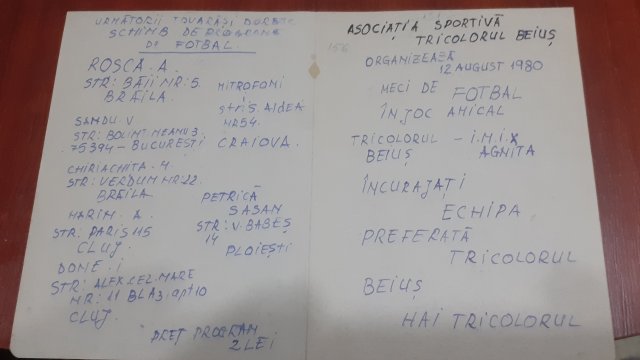 URMĂTORII TOVARĂȘI DORESC
SCHIMB DE PROGRAME
DE FOTBAL.
ROȘCA. A.
STR: BĂII NR: 5.
BRĂILA.
SANDU. V
STR: BOLINT NEANU 3.
75394 - BUCUREȘTI
CHIRIACHITA. M
STR: VERDUM NR: 22.
BRĂILA
MARIN. A.
STR: PARIS 45
CLUJ.
DONE. I
STR: ALEX. CEL. MARE
NR: 11 BL A3. apt 10
CLUJ.
MITROFONI
str: S. ALDEA
NR 54.
CRAIOVA.
PETRICĂ
SASAN
STR: V. BABEȘ
14
PLOIEȘTI
PREȚ PROGRAM
2 LEI
156
ASOCIATIA SPORTIVĂ
TRICOLORUL BEIUȘ
ORGANIZEAZĂ
12 AUGUST 1980
MECI DE FOTBAL
ÎN JOC AMICAL
TRICOLORUL - I.M.I.X
BEIUȘ AGNITA
ÎNCURAJAȚI
ECHIPA
PREFERATĂ
TRICOLORUL
BEIUȘ
HAI TRICOLORUL